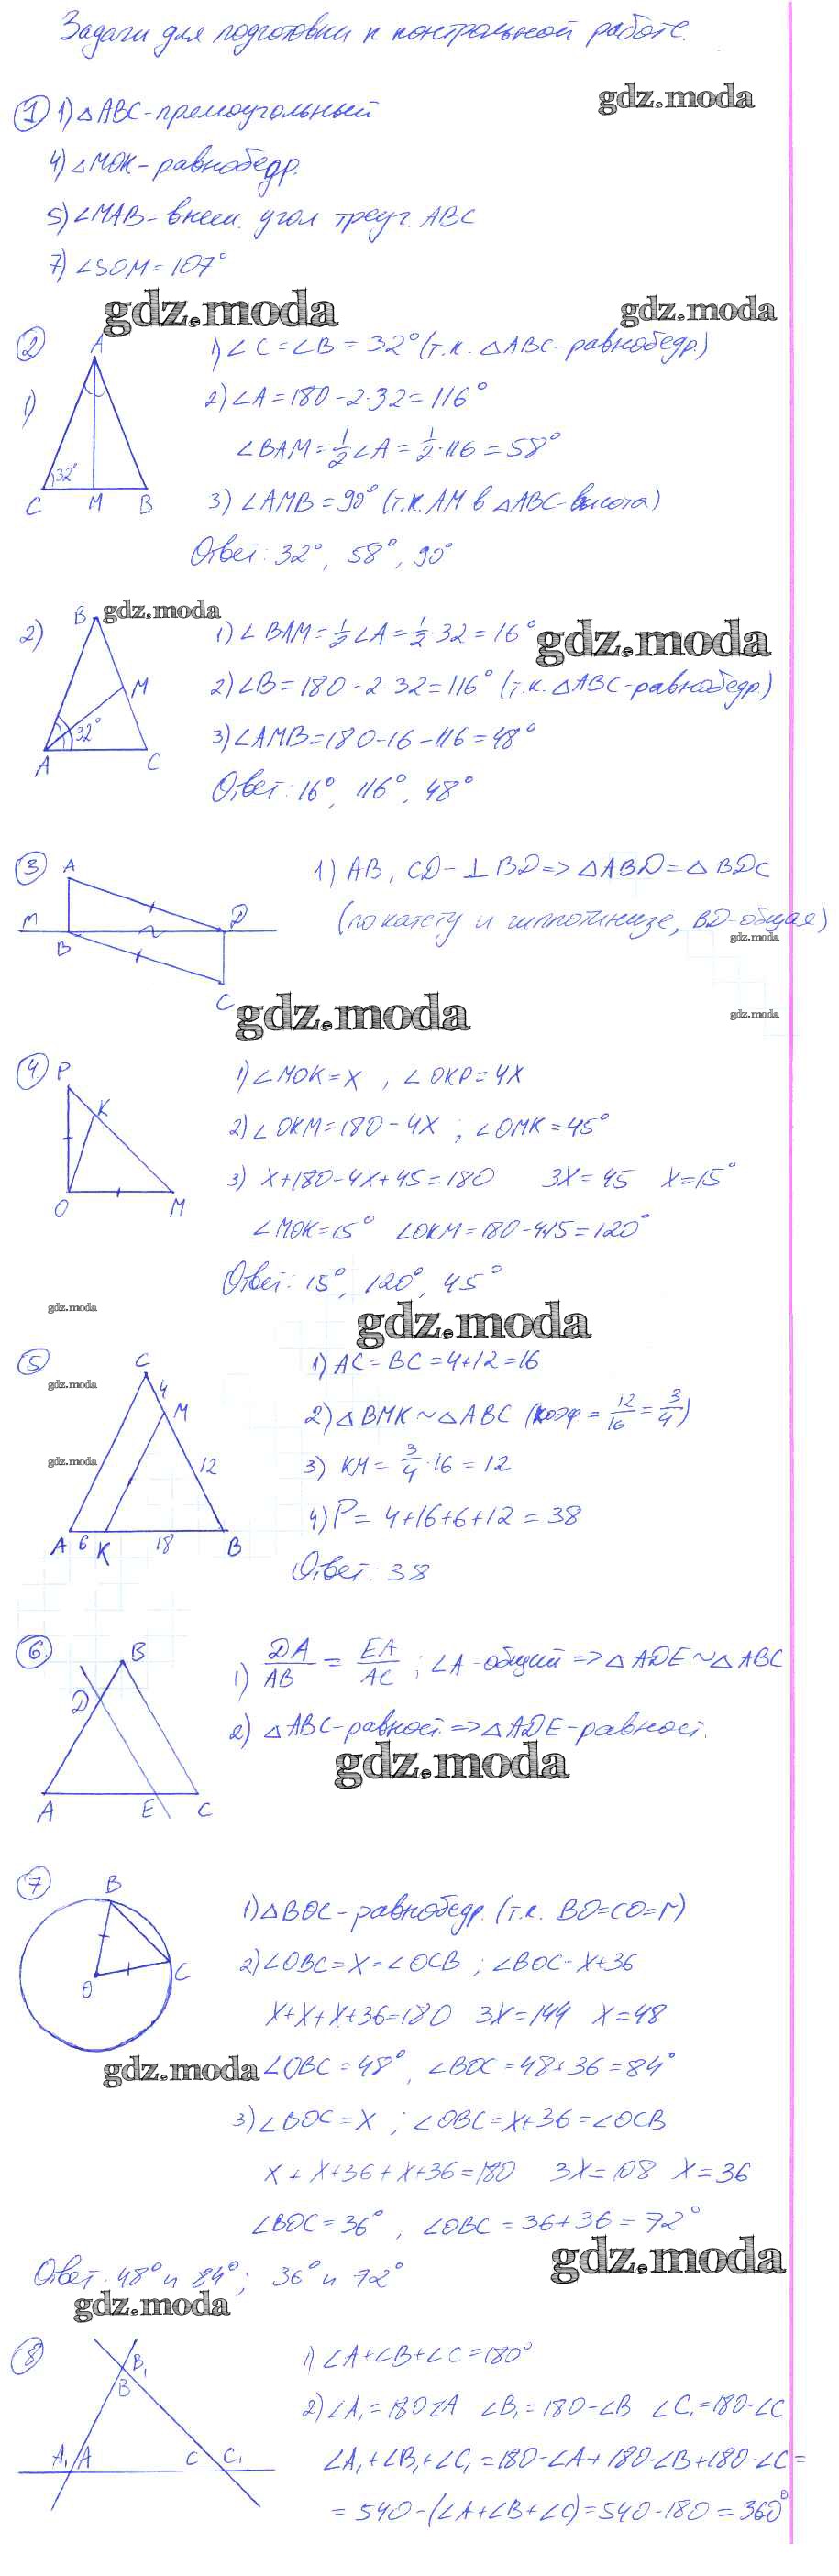 Задачи для подготовки к контрольной работе.
gdz.moda
1 1) △ABC - прямоугольный
4) △MOK - равнобедр.
5) ∠MAB - внеш. угол треуг. ABC
7) ∠SOM = 107°
gdz.moda
gdz.moda
2
1)
A
32°
C M B
1) ∠C = ∠B = 32° (т.к. △ABC - равнобедр.)
2) ∠A = 180 - 2·32 = 116°
∠BAM = 1/2 ∠A = 1/2 · 116 = 58°
3) ∠AMB = 90° (т.к. AM в △ABC - высота)
Ответ: 32°, 58°, 90°
2)
B
gdz.moda
M
32°
A C
1) ∠BAM = 1/2 ∠A = 1/2 · 32 = 16°
gdz.moda
2) ∠B = 180 - 2·32 = 116° (т.к. △ABC - равнобедр)
3) ∠AMB = 180 - 16 - 116 = 48°
Ответ: 16°, 116°, 48°
3
A
m
B
D
C
1) AB, CD - ⊥ BD => △ABD = △BDC
(по катету и гиппотинизе, BD - общая)
gdz.moda
gdz.moda
gdz.moda
4.
P
K
O M
1) ∠MOK = x , ∠OKP = 4x
2) ∠OKM = 180 - 4x ; ∠OMK = 45°
3) x + 180 - 4x + 45 = 180 3x = 45 x = 15°
∠MOK = 15° ∠OKM = 180 - 4·15 = 120°
Ответ: 15°, 120°, 45°
gdz.moda
gdz.moda
5
C
4
M
12
A 6 K 18 B
gdz.moda
gdz.moda
1) AC = BC = 4+12 = 16
2) △BMK ~ △ABC (коэф = 12/16 = 3/4)
3) KM = 3/4 · 16 = 12
4) P = 4+16+6+12 = 38
Ответ: 38
6.
B
D
A E C
1) DA/AB = EA/AC ; ∠A - общий => △ADE ~ △ABC
2) △ABC - равност. => △ADE - равност.
gdz.moda
7
B
C
O
1) △BOC - равнобедр. (т.к. BO=CO=r)
2) ∠OBC = x = ∠OCB ; ∠BOC = x+36
x+x+x+36=180 3x=144 x=48
gdz.moda
∠OBC = 48°, ∠BOC = 48+36 = 84°
3) ∠BOC = x ; ∠OBC = x+36 = ∠OCB
x + x+36 + x+36 = 180 3x = 108 x = 36
∠BOC = 36°, ∠OBC = 36+36 = 72°
gdz.moda
Ответ: 48° и 84°; 36° и 72°
gdz.moda
8
B₁
B
A₁ A C C₁
1) ∠A+∠B+∠C = 180°
2) ∠A₁ = 180-∠A ∠B₁ = 180-∠B ∠C₁ = 180-∠C
∠A₁+∠B₁+∠C₁ = 180-∠A+180-∠B+180-∠C =
= 540-(∠A+∠B+∠C) = 540-180 = 360°